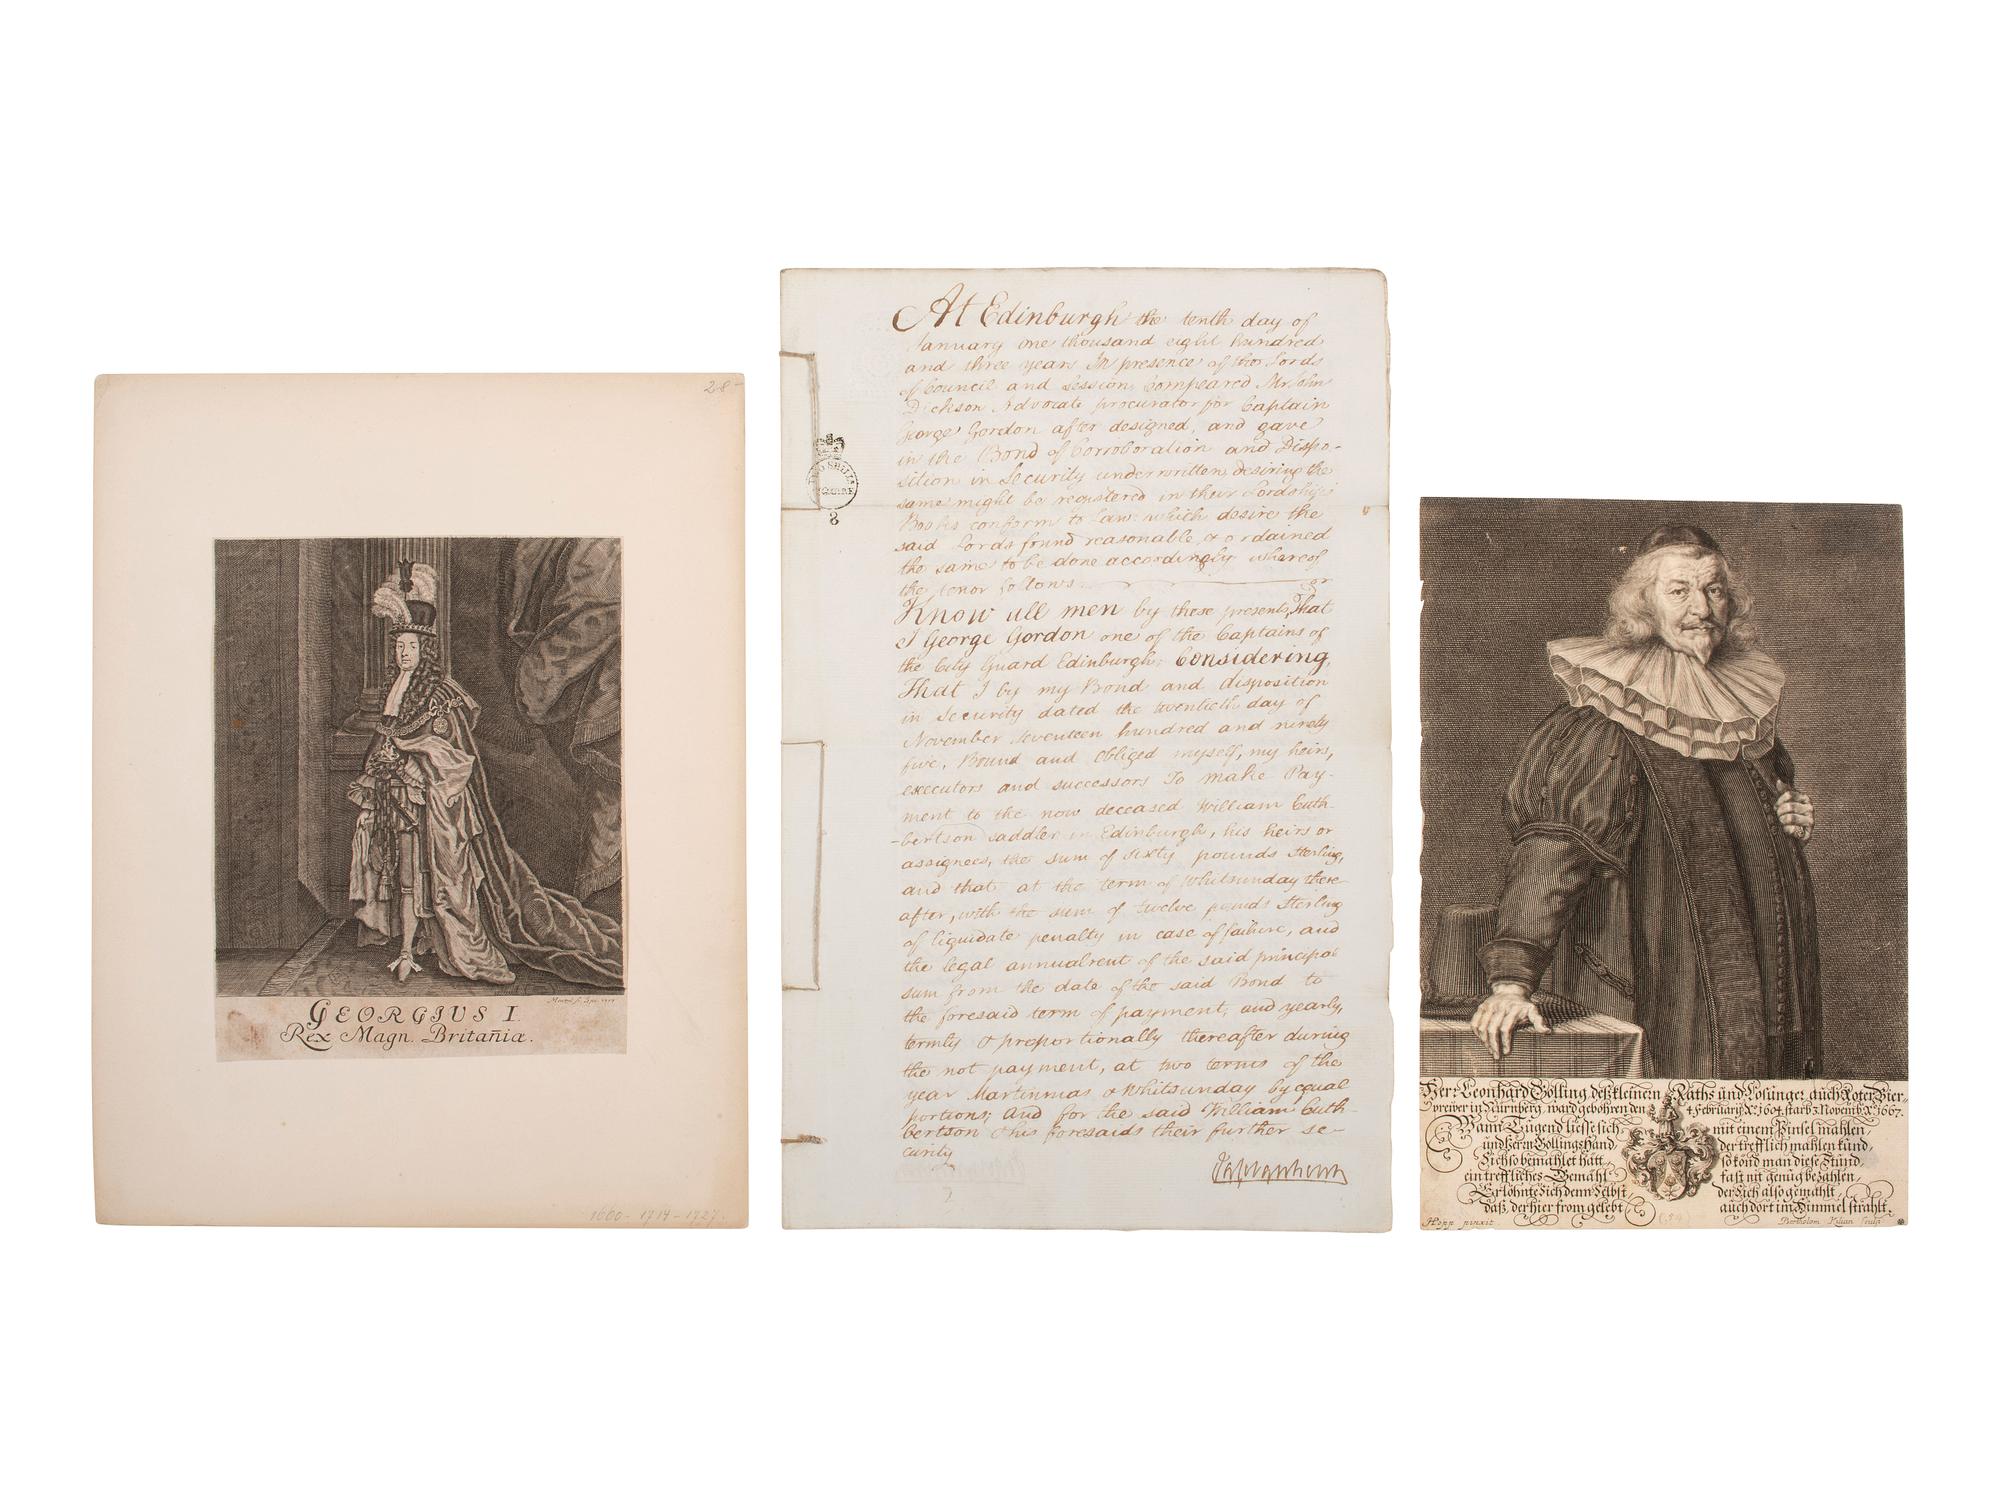 28-
Georgius I.
Rex Magn. Britañiæ.
1660-1714-1727.
At Edinburgh the tenth day of
January one thousand eight hundred
and three years In presence of the Lords
of Council and Session, Compeared Mr John
Dickson Advocate procurator for Captain
George Gordon after designed, and gave
in the Bond of Corroboration and Dispo-
sition in Security underwritten desiring the
same might be registered in their Lordships
Books conform to Law: which desire the
said Lords found reasonable, & ordained
the same to be done accordingly whereof
the tenor follows
Know all men by these presents, That
I George Gordon one of the Captains of
the City Guard Edinburgh; Considering,
That I by my Bond and disposition
in Security dated the twentieth day of
November seventeen hundred and ninety
five, Bound and Obliged myself, my heirs,
executors and successors To make Pay-
ment to the now deceased William Cuth-
-bertson saddler in Edinburgh, his heirs or
assignees, the sum of sixty pounds Sterling,
and that at the term of Whitsunday there-
after, with the sum of twelve pounds Sterling
of liquidate penalty in case of failure, and
the legal annualrent of the said principal
sum from the date of the said Bond to
the foresaid term of payment, and yearly,
termly & proportionally thereafter during
the not payment, at two terms of the
year Martinmas & Whitsunday by equal
portions; And for the said William Cuth-
bertson & his foresaids their further se-
curity
8
Herr Leonhard Gölling deß kleinern Raths und Losunger auch Roter Bier-
preiser in Nürnberg, ward gebohren den 4. February Aº. 1601. starb 3. Novemb. Aº. 1667.
Wann Tugend liesse sich mit einem Pinsel mahlen,
und Herrn Göllings Hand der trefflich mahlen kund,
Sich so bemahlet hätt, so könd man diese Stund,
ein treffliches Gemähl fast nit genüg bezahlen,
Er löhnte Sich denn Selbst, der Sich also gemahlt,
daß, der hier from gelebt auch dort im Himmel strahlt.
Hopp pinxit.
Bartholom Kilian Sculp